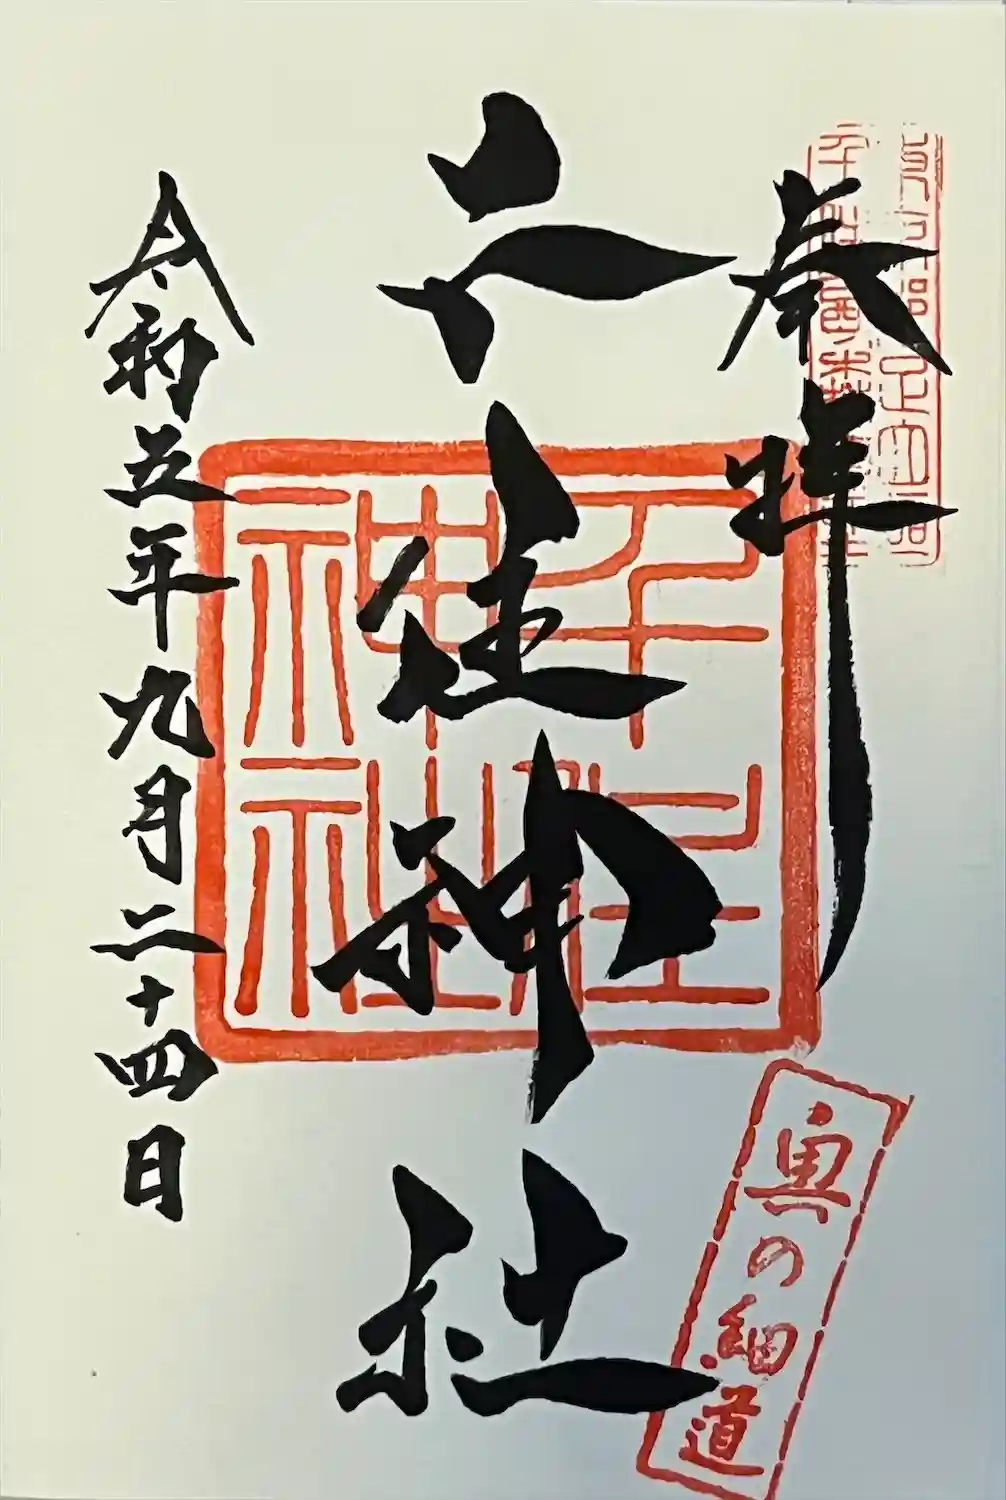 奉拝
千住神社
千住
神社
奥の細道
令和五年九月二十四日